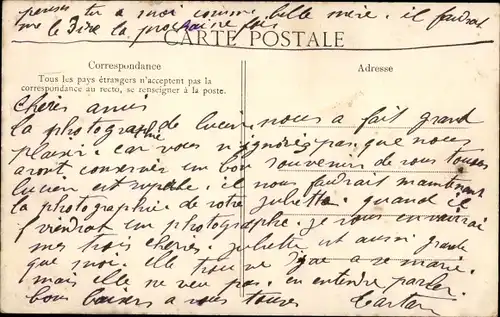 penses tu a moi comme belle mère, il faudrait
me le dire la prochaine foi
CARTE POSTALE
Correspondance
Adresse
Tous les pays étrangers n'acceptent pas la
correspondance au recto, se renseigner à la poste.
Chères amis
la photographie de lucien nous a fait grand
plaisir. car vous n'ignorez pas que nous
avont conserver un bon souvenir de vous toutes
lucien est superbe. il nous faudrait maintenant
la photographie de votre juliette. quand il
viendrat un photographe. je vous enverrai
mes trois chères. juliette est aussi grande
que moi. elle trouve a se marie.
mais elle ne veu pas. en entendre parler.
bons baisers a vous toutes